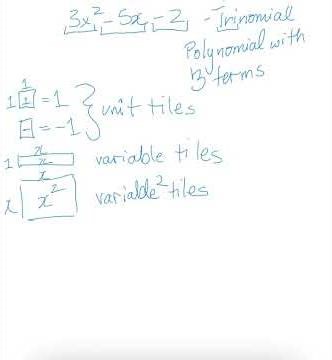 3x² - 5x - 2 - Trinomial
Polynomial with
3 terms
1
1 1 = 1
- = -1 } unit tiles
x
1 x variable tiles
x
x x² variable² tiles